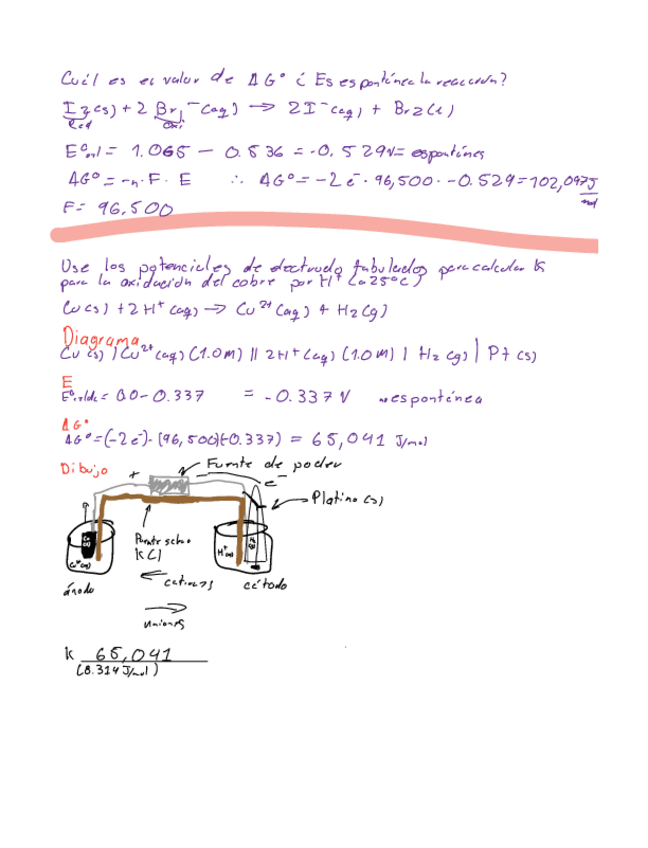 Cuál es el valor de ΔG° ¿ Es espontánea la reacción?
I2(s) + 2 Br⁻(aq) → 2I⁻(aq) + Br2(l)
Red oxi
E°cel = 1.065 − 0.536 = -0.529V= espontánea
ΔG° = -n·F·E ∴ ΔG° = -2e⁻·96,500·-0.529=102,097J/mol
F= 96,500
Use los potenciales de electrodo tabulados para calcular K
para la oxidación del cobre por H⁺ (a 25°C)
Cu(s) + 2H⁺(aq) → Cu²⁺(aq) + H2(g)
Diagrama
Cu(s) | Cu²⁺(aq) (1.0M) || 2H⁺(aq) (1.0M) | H2(g) | Pt(s)
E
= 0.0 − 0.337 = -0.337 V no espontánea
ΔG°
ΔG°=(-2e⁻)·(96,500)(-0.337) = 65,041 J/mol
Dibujo + Fuente de poder
e⁻
Platino(s)
Cu(s)
Cu²⁺(aq)
Puente salino
KCl
H⁺(aq)
ánodo cationes cátodo
aniones
K 65,041
(8.314 J/mol)